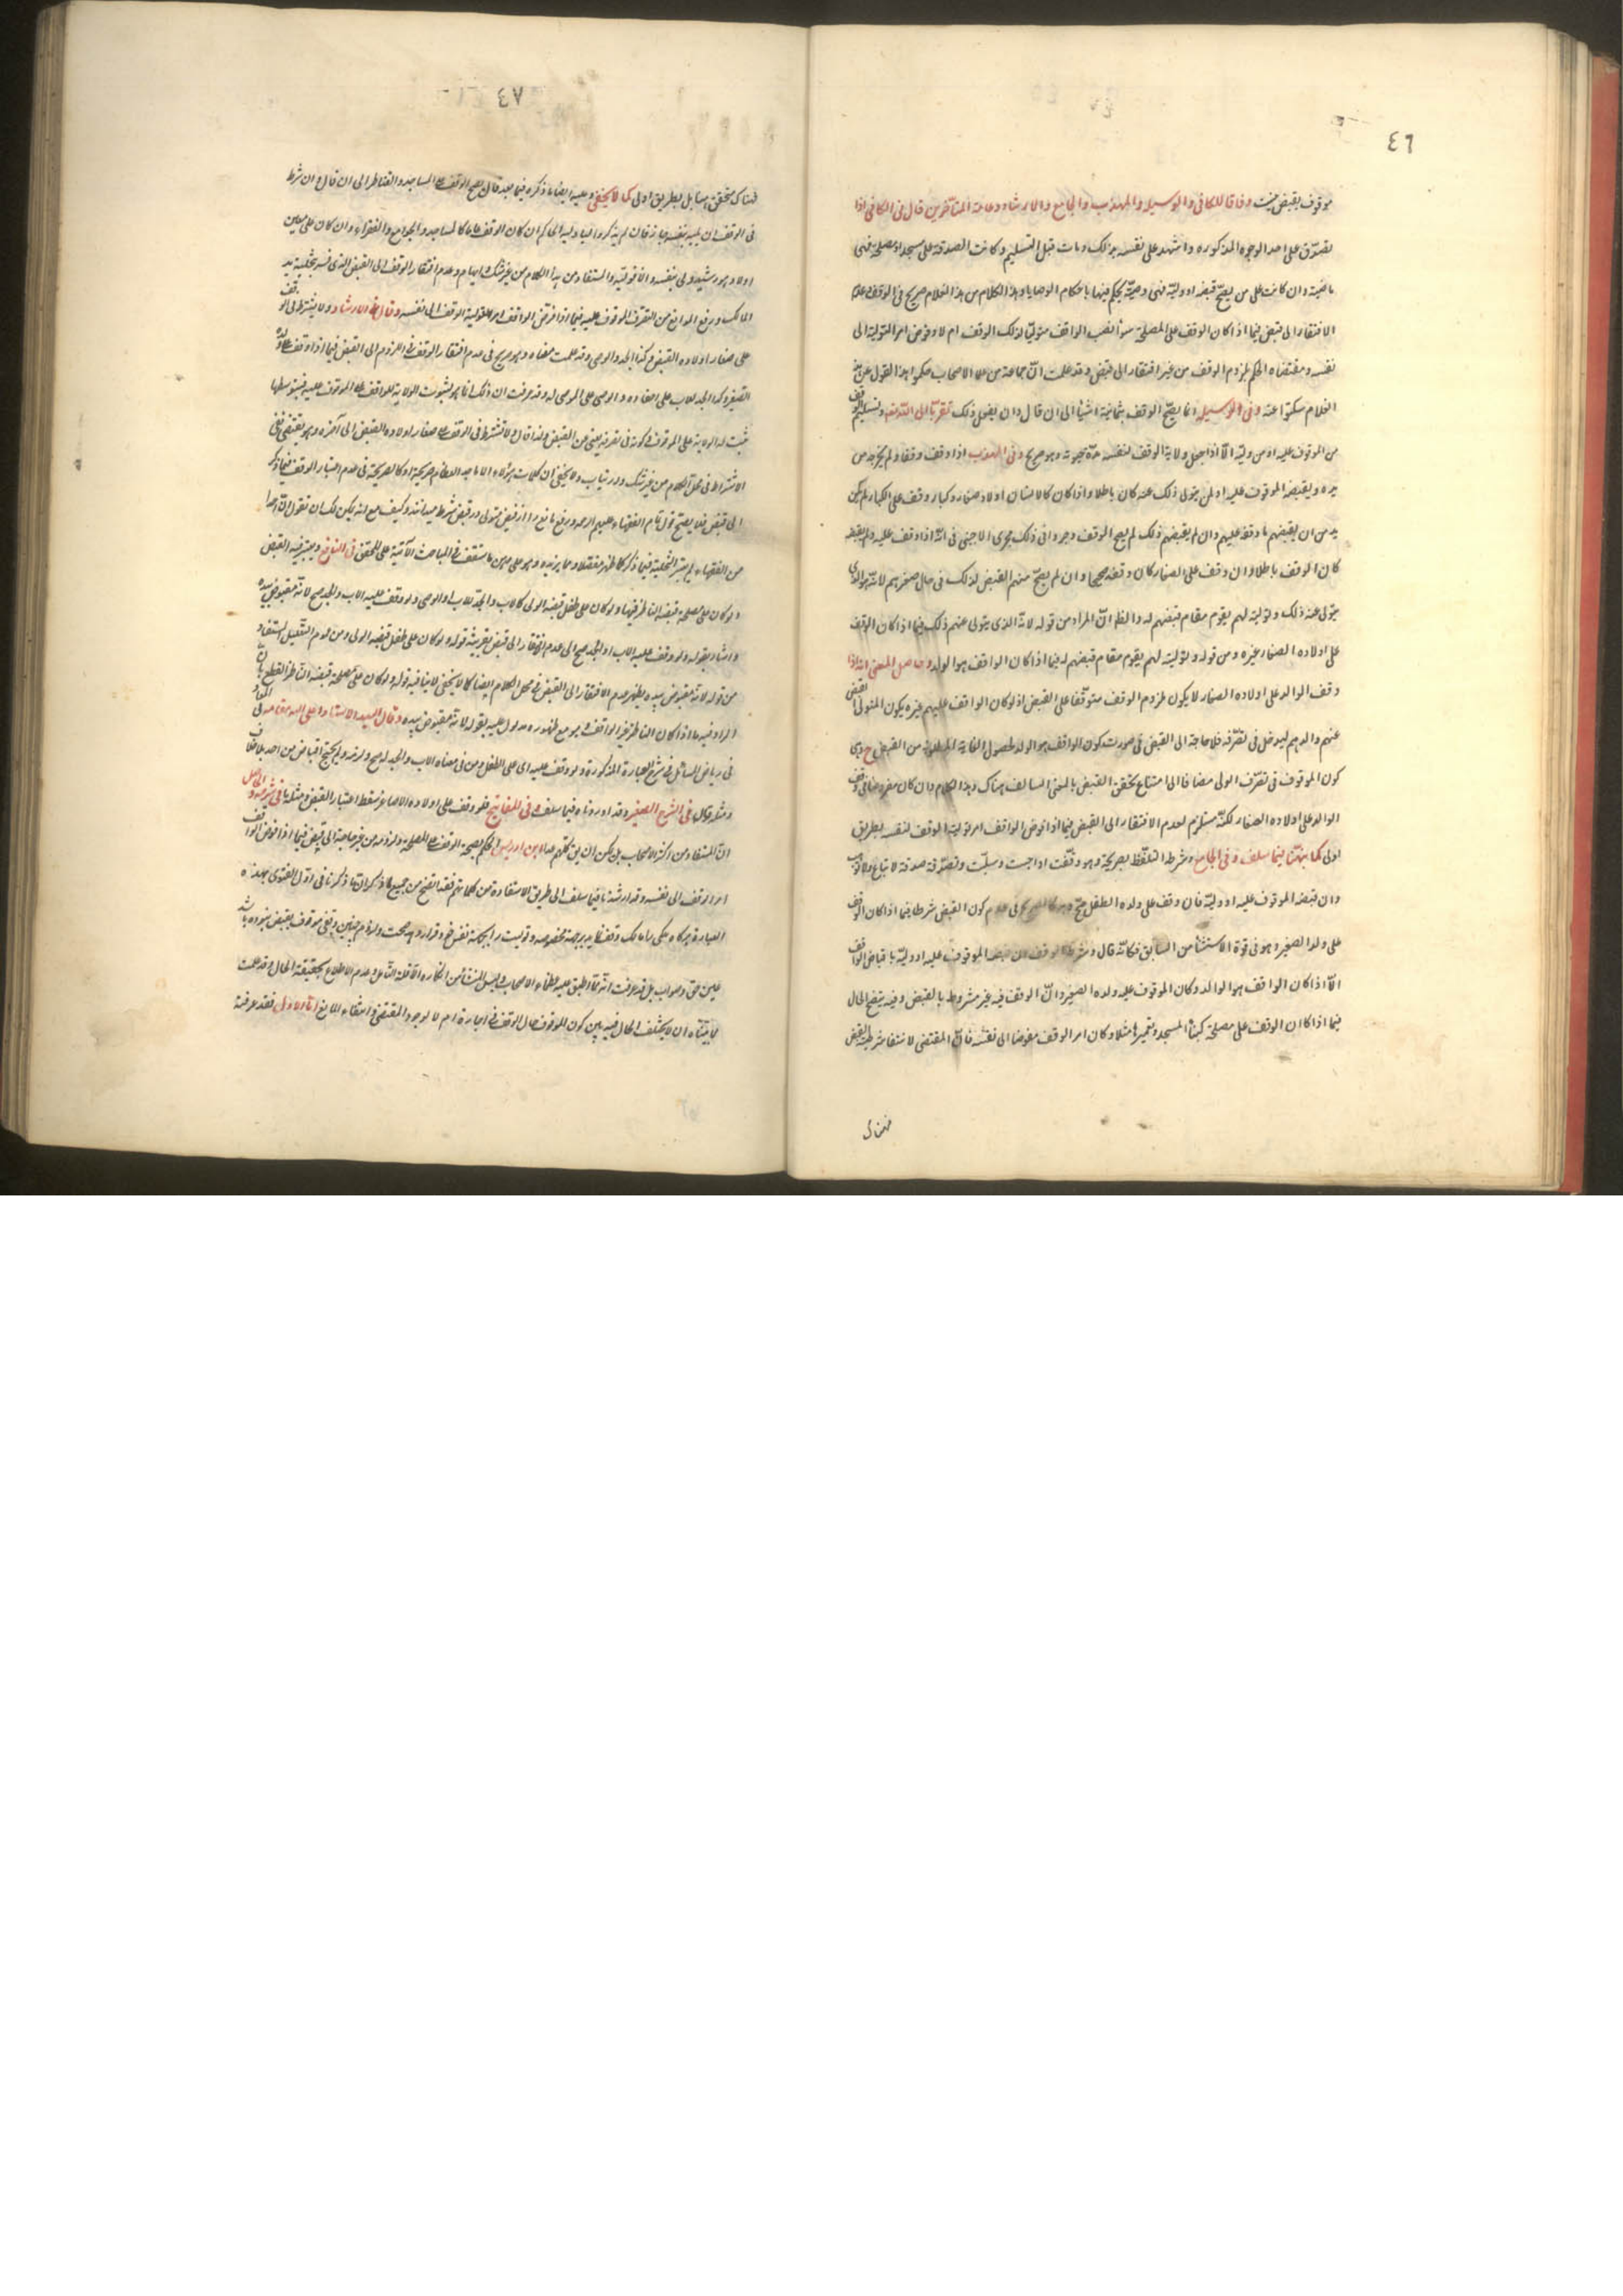 ٤٦
موقوف بقبض نيست وفاقا للكافى والوسيله والمهذب والجامع والارشاد وعامة المتأخرين قال فى الكافى اذا
تصدق على احد الوجوه المذكوره واشهد على نفسه بذلك ومات قبل التسليم وكانت الصدقة على مسجد او مصلحة فهى
ماضية وان كانت على من يصح قبضه او وليه فهى وصية يحكم فيها باحكام الوصايا وهذا الكلام من هذا العلام صريح فى الوقف
الافتقار الى قبض فيما اذا كان الوقف على المصلحة سواء نصب الواقف متوليا لذلك الوقف ام لا وفوض امر التولية الى
نفسه ومقتضاه الحكم بلزوم الوقف من غير افتقار الى قبض وقد علمت ان جماعة من علماء الاصحاب حكموا هذا القول عن هذا
العلام سكتوا عنه وفى الوسيله انما يصح الوقف بثمانية اشياء الى ان قال وان يفعل ذلك تقربا الى الله وتسليم الوقف
من الموقوف عليه او من وليه الا اذا جعل ولاية الوقف لنفسه مدة حيوته وهو صريح وفى المهذب اذا وقف وقفا ولم يخرجه من
يده ويقبضه الموقوف عليه او لمن يتولى ذلك عنه كان باطلا واذا كان كالانسان اولاد صغار وكبار وقف على الكبار لم يكن
بد من ان يقبضهم ما وقفه عليهم وان لم يقبضهم ذلك لم يصح الوقف وجروا فى ذلك مجرى الاجنبى فى انه اذا وقف عليه ولم يقبضه
كان الوقف باطلا وان وقف على الصغار كان وقفه صحيحا وان لم يصح منهم القبض لذلك فى حال صغرهم لانه هو الذى
يتولى عنه ذلك وتوليته لهم يقوم مقام قبضهم له والظ ان المراد من قوله لانه الذى يتولى عنهم ذلك فيما اذا كان الواقف
على اولاده الصغار غيره ومن قوله وتوليته لهم يقوم مقام قبضهم له فيما اذا كان الواقف هو الولد وحاصل المعنى انه اذا
وقف الوالد على اولاده الصغار لا يكون لزوم الوقف متوقفا على القبض اذ لو كان الواقف عليهم غيره يكون المتولى القبض
عنهم والدهم ليدخل فى تصرفه فلا حاجة الى القبض فى صورت كون الواقف هو الولد لحصول الغاية المطلوبة من القبض ح وهى
كون الموقوف فى تصرف الولى مضافا الى امتناع تحقق القبض بالمعنى السالف هناك وهذا الكلام وان كان مفروضا فى وقف
الوالد على اولاده الصغار لكنه مستلزم لعدم الافتقار الى القبض فيما اذا فوض الواقف امر تولية الوقف لنفسه بطريق
اولى كما نبهنا فيما سلف وفى الجامع وشرط التلفظ بصريحه وهو وقفت او حبست وسبلت وتصدقت صدقة لا تباع ولا توهب
وان قبضه الموقوف عليه او وليه فان وقف على ولده الطفل صح وهو كالصريح فى عدم كون القبض شرطا فيما اذا كان الوقف
على ولد الصغير اه هو فى قوة الاستثناء من السابق فكانه قال وشرط الوقف ان يقبضه الموقوف عليه او وليه باقباض الواقف
الا اذا كان الواقف هو الوالد وكان الموقوف عليه ولده الصغير وان الوقف فيه غير مشروط بالقبض وفيه يتضح الحال
فيما اذا كان الوقف على مصلحة كبناء المسجد وتعميرها مثلا وكان امر الوقف مفوضا الى نفسه فان المقتضى لانتفاء شرطية القبض
٤٧
هناك متحقق بل بطريق اولى كما لا يخفى وعليه ايضا ما ذكره فيما بعد قال يصح الوقف على المساجد والقناطر الى ان قال وان شرط
فى الوقف ان يليه بنفسه جاز فان لم يذكر واليا وليه الحاكم ان كان الوقف عاما كالمساجد والجوامع والفقراء وان كان على معين
اولاد هو رشيد ولى بنفسه والا فوليه والمستفاد من هذا الكلام من غير شك وابهام عدم افتقار الوقف الى القبض الذى فسر بتخلية يد
المالك ورفع الموانع من التصرف الموقوف عليه فيما اذا فرض الواقف امر تولية الوقف الى نفسه وقال فى الارشاد ولا يشترط لو وقف
على صغار اولاده القبض وكذا الجد والوصى وقد علمت مفاده وهو صريح فى عدم افتقار الوقف فى اللزوم الى القبض فيما اذا وقف على ولده
الصغير وكذا الجد للاب على احفاده والوصى على الموصى له وقد عرفت ان ذلك انما هو لثبوت الولاية للواقف على الموقوف عليه فبتوسطها
ثبت له الولاية على الموقوف وكونه فى تصرفه يغنى عن القبض ولذا قال ولا تشترط فى الوقف على صغار اولاده القبض الى آخره وهو يقتضى نفى
الاشتراط فى محل الكلام من غير شك وارتياب ولا يخفى ان كلمات هؤلاء الاماجد العظام صريحة او كالصريحة فى عدم اعتبار الوقف فيما ذكر
الى قبض فلا يصح قول تمام الفقهاء عليهم الرحمه ورفع مانع را از قبض متولى در قبض شرط ميدانند وكيف مع انه يمكن لك ان تقول ان احدا
من الفقهاء لم يعتبر التخلية فيما ذكر كما ظهر مفصلا ومما يزيده وهو على معين ما ستقف فى المباحث الآتية على المحقق فى النافع ويعتبر فيه القبض
ولو كان على مصلحة قبضه الناظر فيها ولو كان على طفل قبضه الولى كالاب والجد للاب او الوصى ولو وقف عليه الاب والجد صح لانه مقبوض بيده
واشار بقوله ولو وقف عليه الاب او الجد صح الى عدم افتقار الى قبض بقرينة قوله ولو كان على طفل قبضه الولى ومن عموم التعليل المستفاد
من قوله لانه مقبوض بيده يظهر عدم الافتقار الى القبض فى محل الكلام ايضا كما لا يخفى لا ينافيه قوله ولو كان على مصلحة قبضه الناظر للقطع بان
المراد فيه ما اذا كان الناظر غير الواقف وهو مع ظهوره مدلول عليه بقوله لانه مقبوض بيده وقال السيد الاستاد اعلى الله مقامه
فى رياض المسائل فى شرح العبارة المذكورة ولو وقف عليه اى على الطفل ومن فى معناه الاب والجد له صح ولزم ولم يحتج اقباض من احد بلا خلاف
ومثله قال فى الشرح الصغير وقد اوردناه فيما سلف وفى المفاتيح فلو وقف على اولاده الاصاغر سقط اعتبار القبض ومثله ما فى شرحه والحاصل
ان المستفاد من اكثر الاصحاب بل يمكن ان يق كلهم عدا ابن ادريس الحكم بصحة الوقف على المصلحة ولزومه من غير حاجة الى قبض فيما اذا فوض الواقف
امر الوقف الى نفسه وقد ارشدنا فيما سلف الى طريق الاستفادة من كلماتهم فقد اتضح من جميع ما ذكر ان ما ذكرنا فى اول الفتوى بهذه
العبارة هركاه ملكى را مالك وقف نمايد بر جهة مخصوصه وتوليت را بجهة نفس خود قرار دهد صحت ولزوم چنين وقفى موقوف بقبض نبوده باشد
عين حق وصواب بل قد عرفت انه مما تطبق عليه عظماء الاصحاب وليس المنشأ من انكاره الا قلة التأمل وعدم الاطلاع بحقيقة الحال وقد علمت
مما بيناه ان لا يختلف الحال فيه بين كون الموقوف حال الوقف فى اجارة ام لا لوجود المقتضى وانتفاء المانع اما الاول فقد عرفته